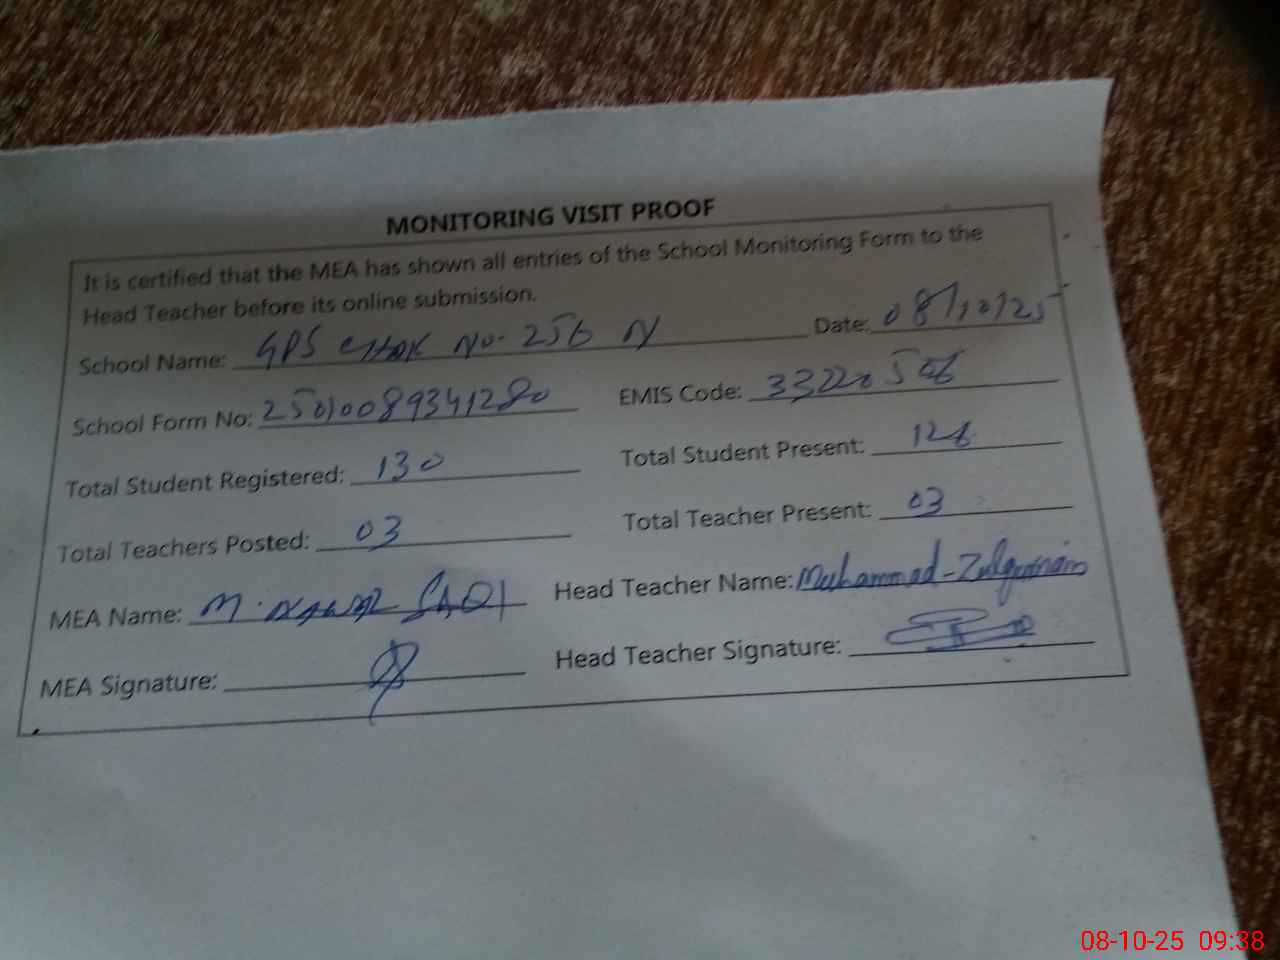 MONITORING VISIT PROOF
It is certified that the MEA has shown all entries of the School Monitoring Form to the
Head Teacher before its online submission.
School Name: GPS CHAK No. 256 Date: 08/10/25
School Form No: 25010089341280 EMIS Code:
Total Student Registered: 130 Total Student Present:
Total Teachers Posted: 03 Total Teacher Present: 03
MEA Name: M. Head Teacher Name: Muhammad-Zulqurnain
MEA Signature: Head Teacher Signature:
08-10-25 09:38